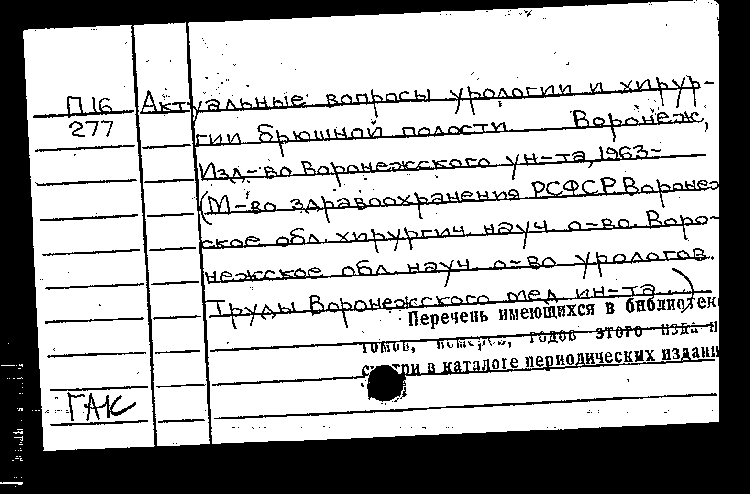 П16 Актуальные вопросы урологии и хирур-
277 гии брюшной полости. Воронеж,
Изд-во Воронежского ун-та, 1963-
(М-во здравоохранения РСФСР. Воронеж-
ское обл. хирургич. науч. о-во. Воро-
нежское обл. науч. о-во урологов.
Труды Воронежского мед. ин-та...)
Перечень имеющихся в библиотеке
томов, номеров, годов этого изда н
смотри в каталоге периодических издани
ГАК